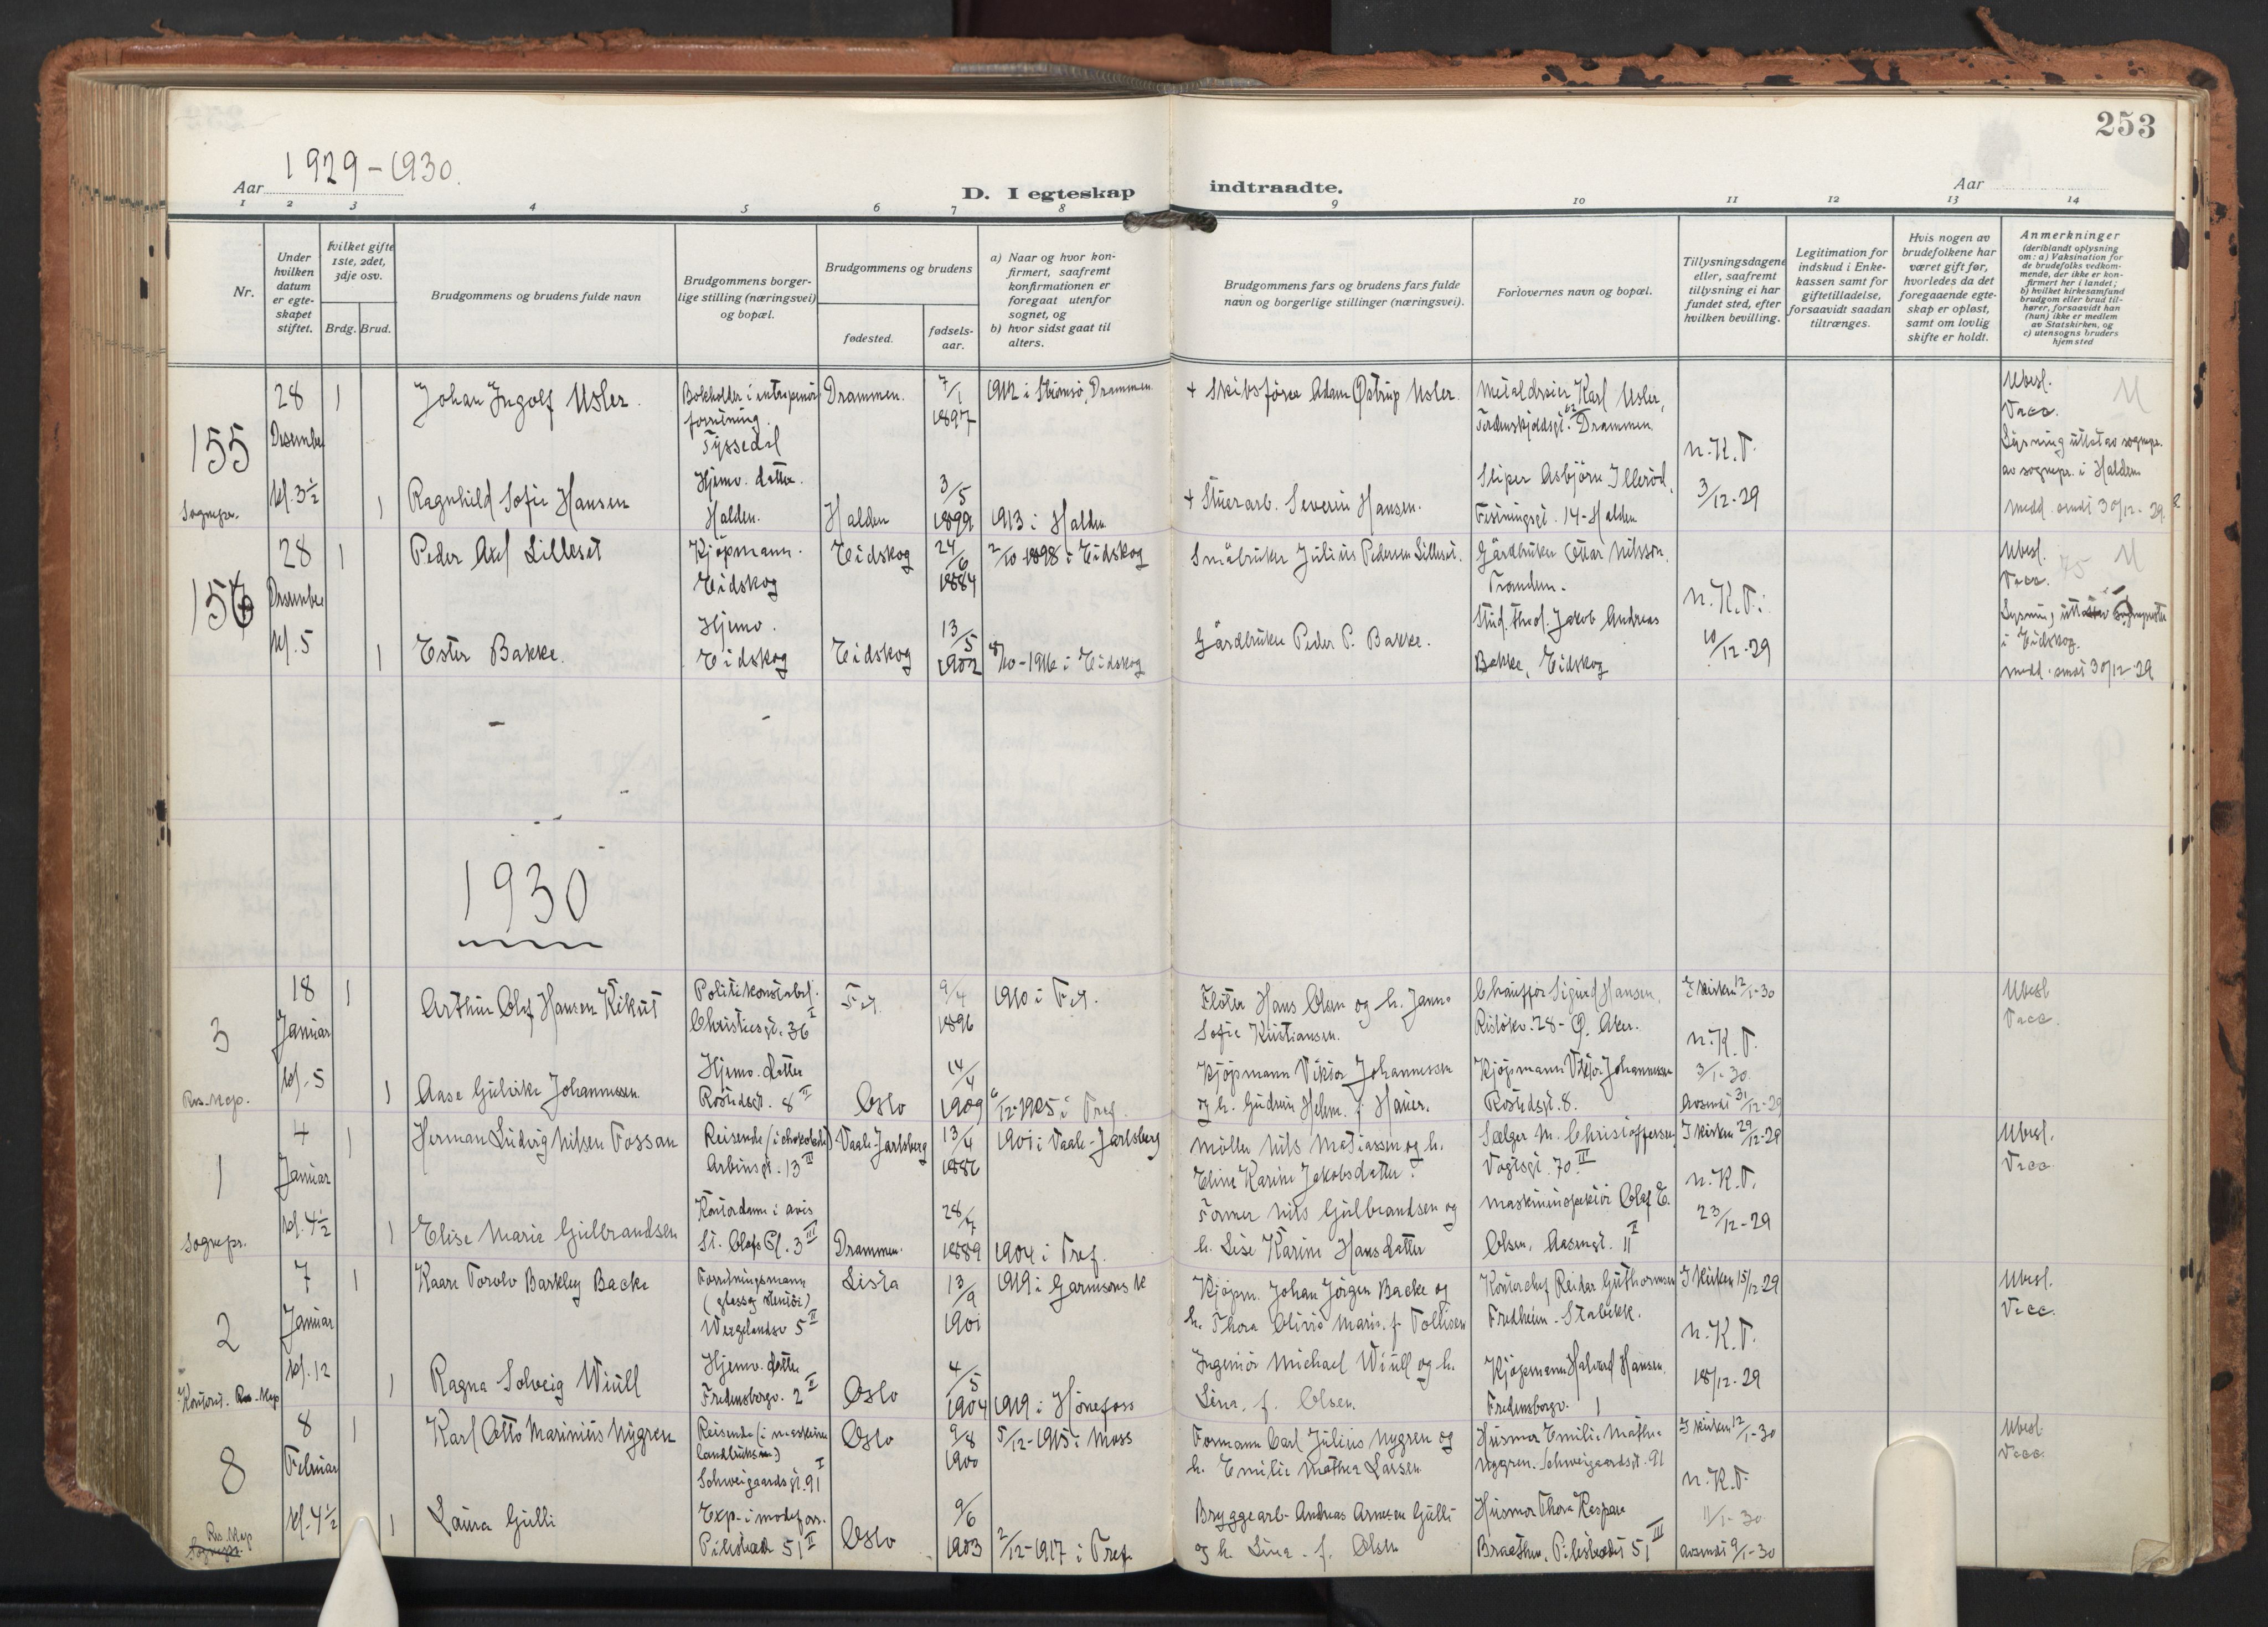 253
Aar 1929-1930.
D. I egteskap
indtraadte.
Aar
1 2 3 4 5 6 7 8 9 10 11 12 13 14
Nr.
Under hvilken datum er egte-skapet stiftet.
Hvilket gifte 1ste, 2det, 3dje osv.
Brdg. Brud.
Brudgommens og brudens fulde navn
Brudgommens borger-lige stilling (næringsvei) og bopæl.
Brudgommens og brudens
fødested.
fødsels-aar.
a) Naar og hvor kon-firmert, saafremt konfirmationen er foregaat utenfor sognet, og
b) hvor sidst gaat til alters.
Brudgommens fars og brudens fars fulde navn og borgerlige stillinger (næringsvei).
Forlovernes navn og bopæl.
Tillysningsdagene eller, saafremt tillysning ei har fundet sted, efter hvilken bevilling.
Legitimation for indskud i Enke-kassen samt for giftetilladelse, forsaavidt saadan tiltrænges.
Hvis nogen av brudefolkene har været gift før, hvorledes da det foregaaende egte-skap er opløst, samt om lovlig skifte er holdt.
Anmerkninger
(deriblandt oplysning om: a) Vaksination for de brudefolks vedkom-mende, der ikke er kon-firmert her i landet; b) hvilket kirkesamfund brudgom eller brud til-hører, forsaavidt han (hun) ikke er medlem av Statskirken, og c) utensogns bruders hjemsted
155
Sognepr.
28 Desember kl. 3½
1
Johan Ingolf Usler.
Bokholder i entreprenør forretning. Tyssedal
Drammen.
7/1 1897
1912 i Strømsø, Drammen
+ Skibsfører Adam Østrup Usler.
Karl Usler, Tordenskjoldsgt. 62 Drammen
n.K.T.
3/12-29
Ubesl.
Vacc.
Lysning uttat av sognepr.
av sognepr. i Halden
medd. sendt 30/12-29.
1
Ragnhild Sofie Hansen
Hjemv. datter. Halden.
Halden
3/5 1899
1913 i Halden
+ Stuerarb. Severin Hansen.
Sliper Asbjørn Illerød, Festningsgt. 14 - Halden
156
28 Desember kl. 5
1
Peder Axel Lilleset
Kjøpmann. Eidskog
Eidskog
24/6 1884
2/10 1898 i Eidskog
Småbruker Julius Pedersen Lilleset.
Gårdbruker Ottar Nilsson. Tranden.
n.K.T.
10/12-29
Ubesl.
Vacc.
i Eidskog.
medd. sendt 30/12-29
1
Ester Bakke.
Hjemv. Eidskog
Eidskog
13/5 1902
8/10-1916 i Eidskog
Gårdbruker Peder P. Bakke.
Stud. theol. Jakob Andreas Bakke, Eidskog
1930
3
Res. kap.
18 Januar kl. 5
1
Arthur Olaf Hansen Kikut
Politikonstabel. Christiesgt. 36 I
Fet.
9/4 1896
1910 i Fet.
Fløter Hans Olsen og h. Janna Sofie Kristiansen.
Chauffør Sigurd Hansen, Risløkv. 28 - Ø. Aker.
I kirken 12/1-30
n.K.T.
3/1-30.
avsendt 31/12-29
Ubesl
Vacc.
1
Aase Gulvike Johannessen
Hjemv. datter Rostedsgt. 8 II
Oslo
14/4 1909
6/12-1925 i Tref.
Kjøpmann Viktor Johannessen og h. Gudrun Helm. f. Hauer.
Kjøpmann Viktor Johannessen Rostedsgt. 8.
1
Sognepr.
4 Januar kl. 4½
1
Herman Ludvig Nilsen Fossan
Reisende (i chokolade) Arbinsgt. 13 III
Vaale-Jarlsberg
13/4 1886
1901 i Vaale-Jarlsberg
Møller Nils Matiassen og h. Eline Karine Jakobsdatter.
Sælger M. Christoffersen, Vogtsgt. 70 III
I kirken 29/12-29
n.K.T.
23/12-29
Ubesl.
Vacc
1
Elise Marie Gulbrandsen
Kontordame i avis St. Olafs Pl. 3 III
Drammen.
28/7 1889
1904 i Tref.
Former Nils Gulbrandsen og h. Lise Karine Hansdatter
Maskininspektør Olaf E. Olsen, Aasengt. 11 I
2
Kontoret. Res. Kap
7 Januar kl. 12
1
Kaare Torolv Barkley Backe
Forretningsmann (glass og stentøi) Wergelandsv 5 II
Lista
13/9 1901
1919 i Garnisons K
Kjøpm. Johan Jørgen Backe og h. Thora Olivia Marie f. Tollisen
Kontorchef Reidar Guthormsen Fredheim - Stabekk.
I Kirken 15/12-29
n.K.T.
18/12-29
Ubesl.
Vacc.
1
Ragna Solveig Wiull
Hjemv. datter Fredensborgv. 2 II
Oslo
4/5 1904
1919 i Hønefoss
Ingeniør Michael Wiull og h. Lina, f. Olsen.
Kjøpmann Halvard Hansen, Fredensborgv. 1
8
Res. Kap
8 Februar kl. 4½
1
Karl Otto Marinius Nygren
Reisende (i maskiner landbruks) Schweigaardsgt. 91 I
Oslo
9/8 1900
5/12-1915 i Moss
Formann Carl Julius Nygren og h. Emilie Mathea Larsen
Husmor Emilie Mathea Nygren. Schweigaardsgt. 91
I kirken 12/1-30
n.K.T.
11/1-30
avsendt 9/1-30
Ubesl.
Vacc.
1
Laura Gulli
Exp. i modeforr. Pilestræde 51 II
Oslo
9/6 1903
2/12-1917 i Tref.
Bryggearb. Andreas Arnesen Gulli og h. Lina. f. Olsen
Husmor Thora Braathen, Pilestrædet 51 III